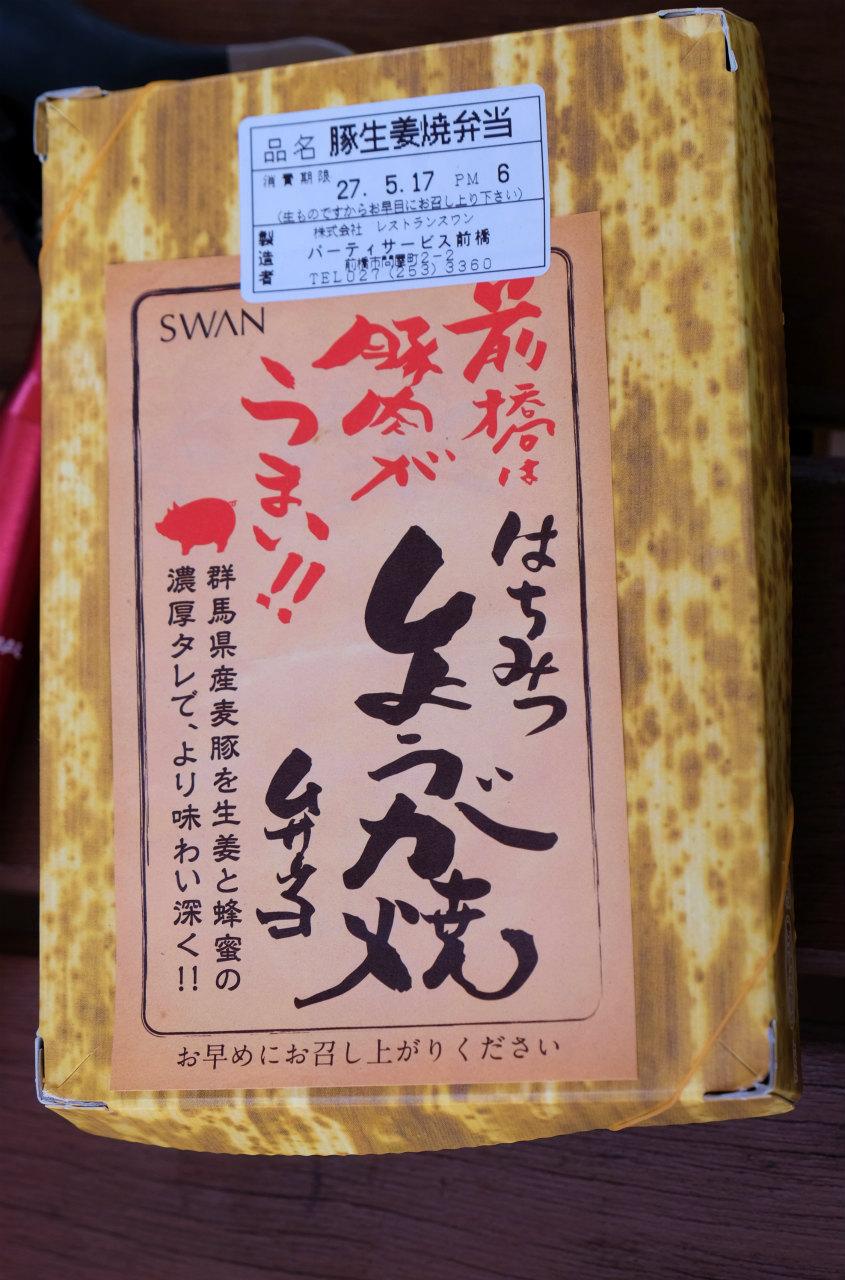 品名 豚生姜焼弁当
消費期限 27. 5.17 PM 6
(生ものですからお早目にお召し上り下さい)
製造者
株式会社 レストランスワン
パーティサービス前橋
前橋市問屋町2-2
TEL027(253)3360
SWAN
前橋は
豚肉が
うまい!!
はちみつ
しょうが焼
弁当
群馬県産麦豚を生姜と蜂蜜の
濃厚タレで、より味わい深く!!
お早めにお召し上がりください